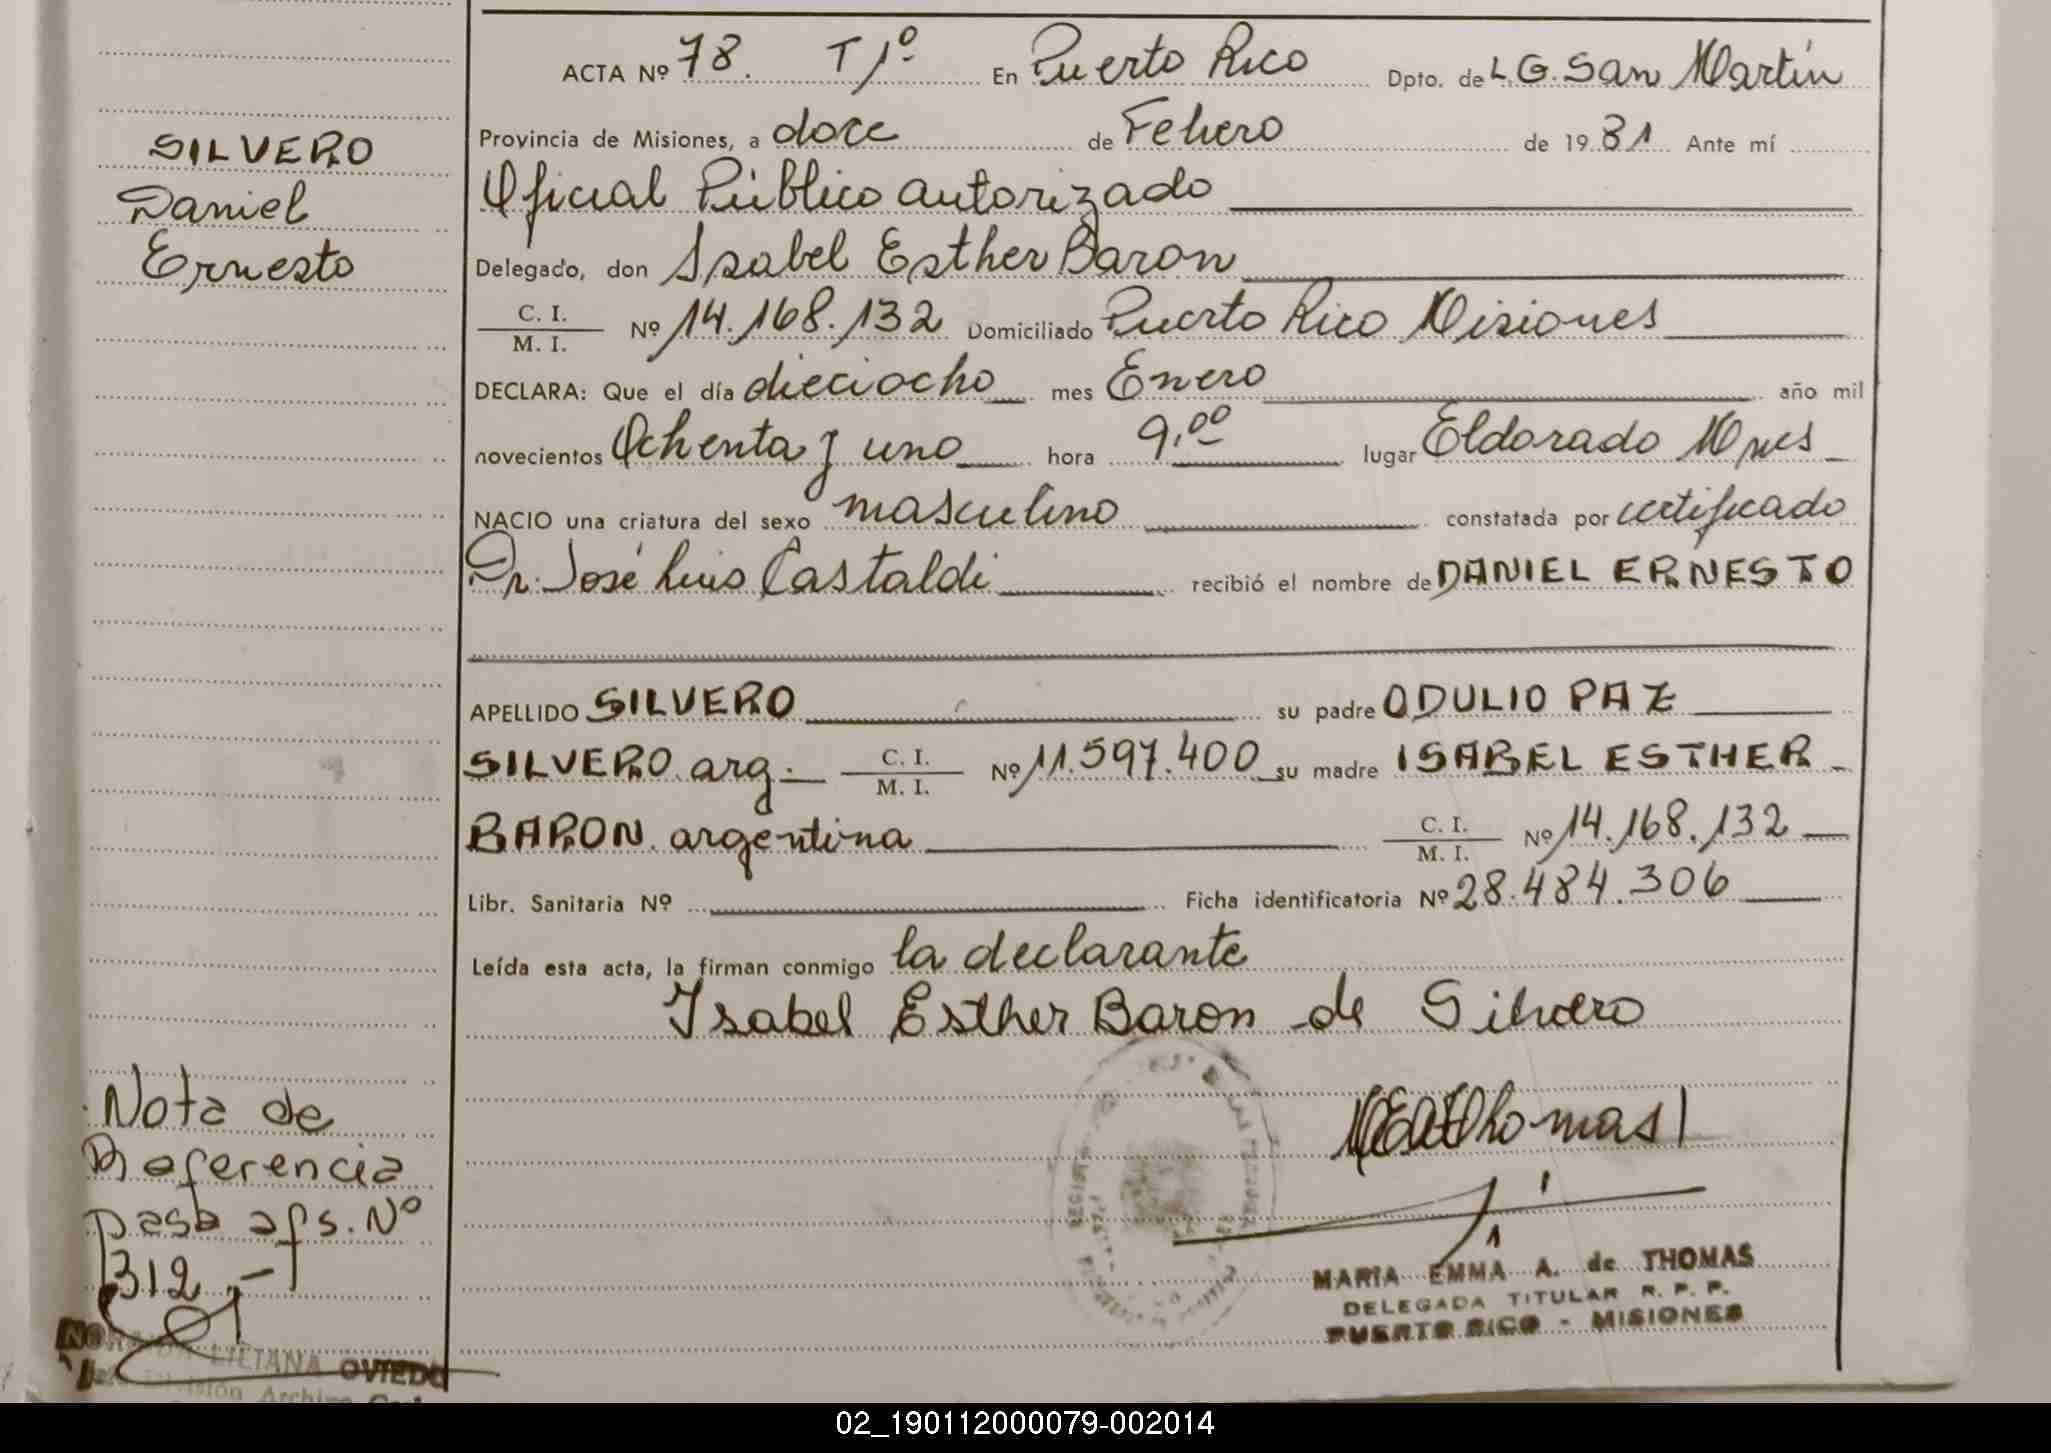 SILVERO
Daniel
Ernesto
ACTA Nº 78. T 1º En Puerto Rico Dpto. de L.G. San Martín
Provincia de Misiones, a doce de Febrero de 1981 Ante mí
Oficial Público autorizado
Delegado, don Isabel Esther Baron
C. I.
M. I. Nº 14.168.132 Domiciliado Puerto Rico Misiones
DECLARA: Que el día dieciocho mes Enero año mil
novecientos Ochenta y uno hora 9,00 lugar Eldorado Mnes
NACIO una criatura del sexo masculino constatada por certificado
Dr. José Luis Castaldi recibió el nombre de DANIEL ERNESTO
APELLIDO SILVERO su padre ODULIO PAZ
SILVERO arg. C. I. M. I. Nº 11.597.400 su madre ISABEL ESTHER
BARON argentina C. I. M. I. Nº 14.168.132
Libr. Sanitaria Nº Ficha identificatoria Nº 28.484.306
Leída esta acta, la firman conmigo la declarante
Isabel Esther Baron de Silvero
MEAdThomas
MARIA EMMA A. de THOMAS
DELEGADA TITULAR R. P. P.
PUERTO RICO - MISIONES
Nota de
Referencia
pasa a fs. Nº
312.-
LILIANA OVIEDO
División Archivo
02_190112000079-002014